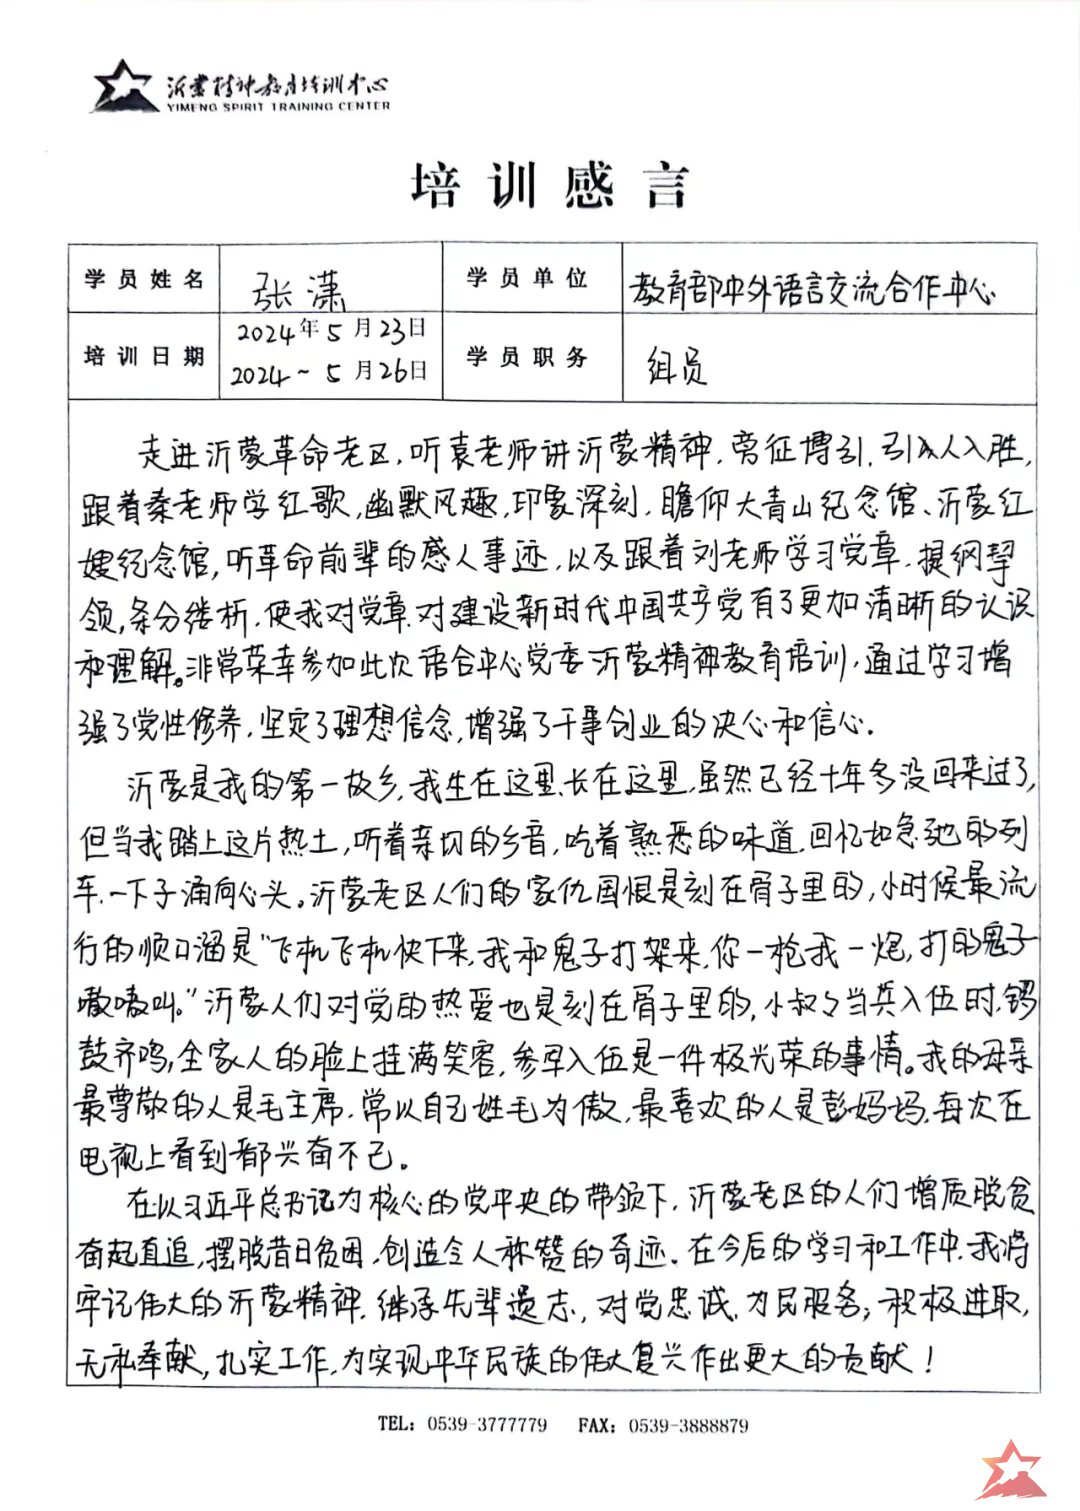 沂蒙精神教育培训中心
YIMENG SPIRIT TRAINING CENTER
培训感言
学员姓名 张潇 学员单位 教育部中外语言交流合作中心
培训日期 2024年5月23日
2024~5月26日 学员职务 组员
走进沂蒙革命老区，听袁老师讲沂蒙精神，旁征博引，引人入胜，
跟着秦老师学红歌，幽默风趣，印象深刻，瞻仰大青山纪念馆、沂蒙红
嫂纪念馆，听革命前辈的感人事迹，以及跟着刘老师学习党章，提纲挈
领，条分缕析，使我对党章、对建设新时代中国共产党有了更加清晰的认识
和理解。非常荣幸参加此次语合中心党委沂蒙精神教育培训，通过学习增
强了党性修养，坚定了理想信念，增强了干事创业的决心和信心。
沂蒙是我的第一故乡，我生在这里、长在这里，虽然已经十年多没回来过了，
但当我踏上这片热土，听着亲切的乡音，吃着熟悉的味道，回忆如急驰的列
车，一下子涌向心头。沂蒙老区人们的家仇国恨是刻在骨子里的，小时候最流
行的顺口溜是“飞机飞机快下来，我和鬼子打架来，你一枪我一炮，打的鬼子
嗷嗷叫。”沂蒙人们对党的热爱也是刻在骨子里的，小叔々当兵入伍时，锣
鼓齐鸣，全家人的脸上挂满笑容，参军入伍是一件极光荣的事情。我的母亲
最尊敬的人是毛主席，常以自己姓毛为傲，最喜欢的人是彭妈妈，每次在
电视上看到都兴奋不已。
在以习近平总书记为核心的党中央的带领下，沂蒙老区的人们增质脱贫
奋起直追，摆脱昔日贫困，创造令人称赞的奇迹。在今后的学习和工作中，我将
牢记伟大的沂蒙精神，继承先辈遗志，对党忠诚，为民服务；积极进取，
无私奉献，扎实工作，为实现中华民族的伟大复兴作出更大的贡献！
TEL：0539-3777779 FAX：0539-3888879